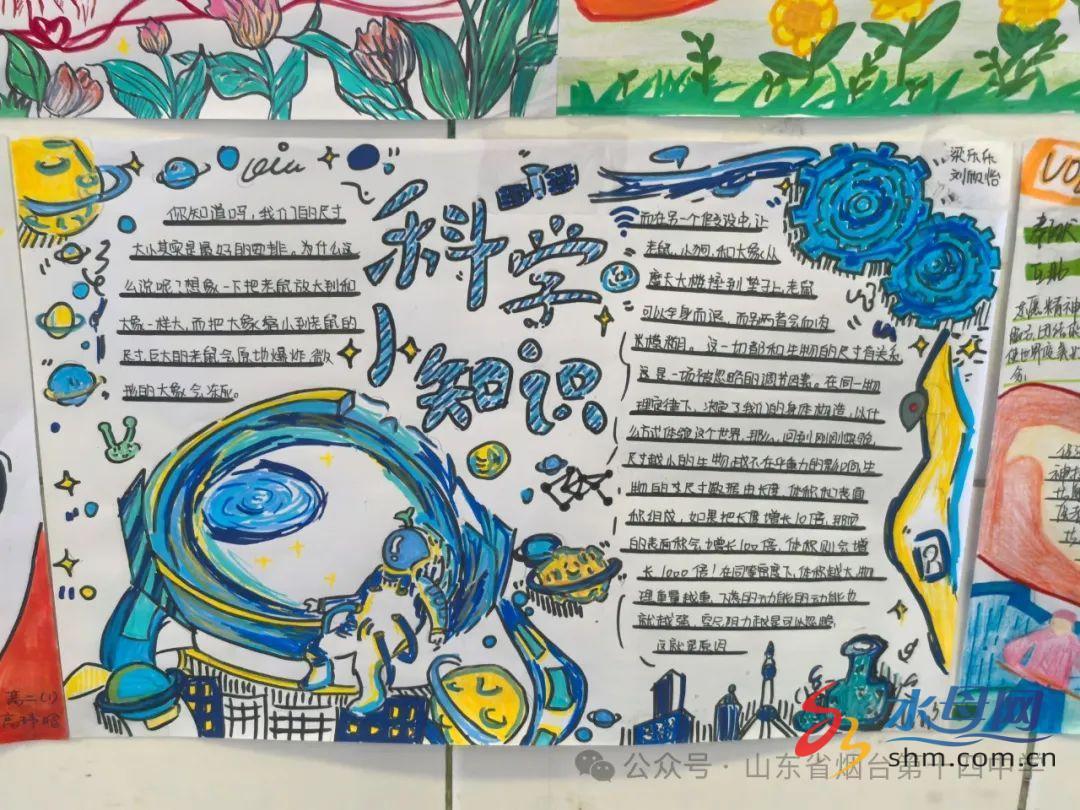 科学
小知识
梁乐乐
刘欣怡
你知道吗，我们的尺寸
大小其实是最好的安排。为什么这
么说呢？想象一下把老鼠放大到和
大象一样大，而把大象缩小到老鼠的
尺寸，巨大的老鼠会原地爆炸，微
的大象会冻死。
而在另一个假设中，让
老鼠、小狗、和大象从
摩天大楼摔到垫子上，老鼠
可以全身而退，而另两者会血肉
模糊。这一切都和生物的尺寸有关系
这是一场被忽略的调节因素。在同一物
理定律下，决定了我们的身体构造，以什
么方式体验这个世界，那么，回到刚刚
尺寸越小的生物越不在乎重力的影响，生
物的尺寸数据由长度、体积和表面
积组成，如果把长度增长10倍，那
的表面积会增长100倍，体积则会增
长1000倍！在同等密度下，体积越大，物
理重量越重，下落的动能的动能也
就越强，空气阻力
这就是原因
高二(1)
水母网
shm.com.cn
公众号·山东省烟台第十四中学